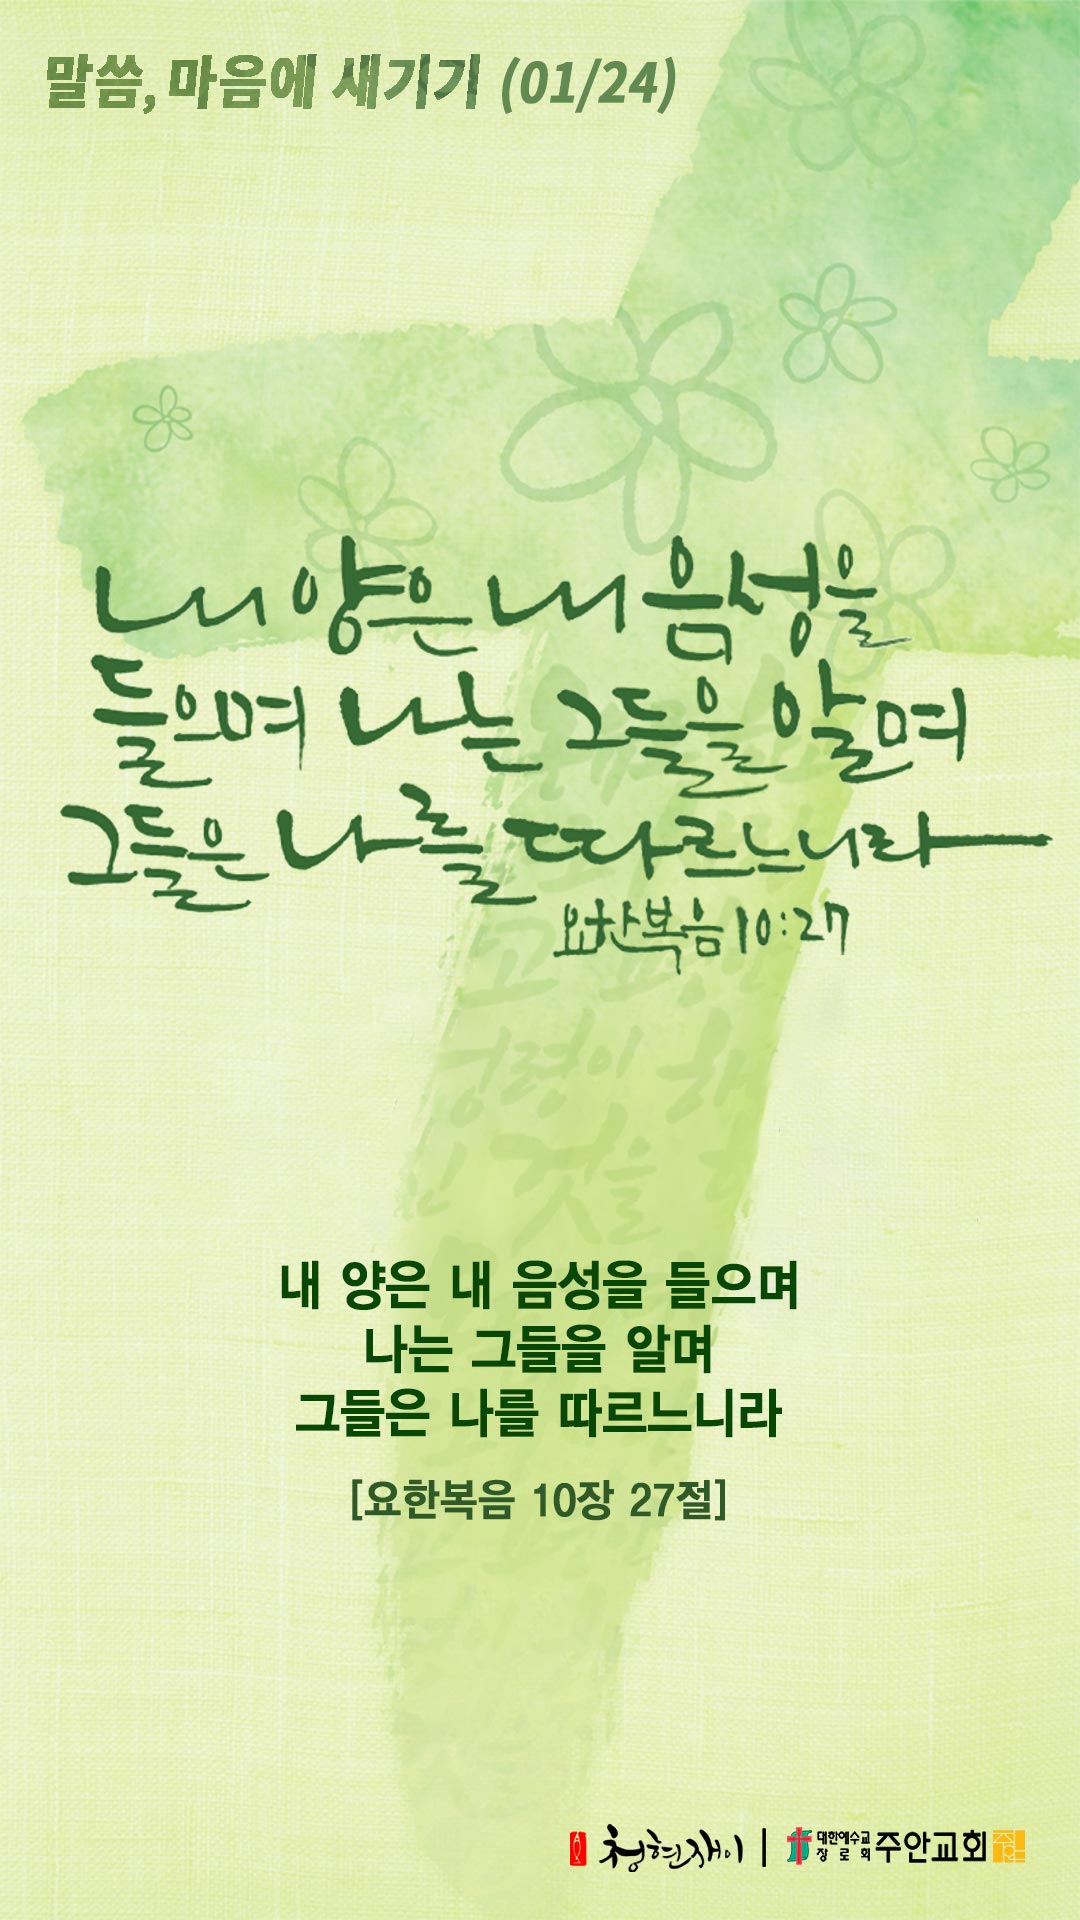 말씀, 마음에 새기기 (01/24)
내 양은 내 음성을
들으며 나는 그들을 알며
그들은 나를 따르느니라
요한복음 10:27
내 양은 내 음성을 들으며
나는 그들을 알며
그들은 나를 따르느니라
[요한복음 10장 27절]
청현재이 | 대한예수교
장로회 주안교회